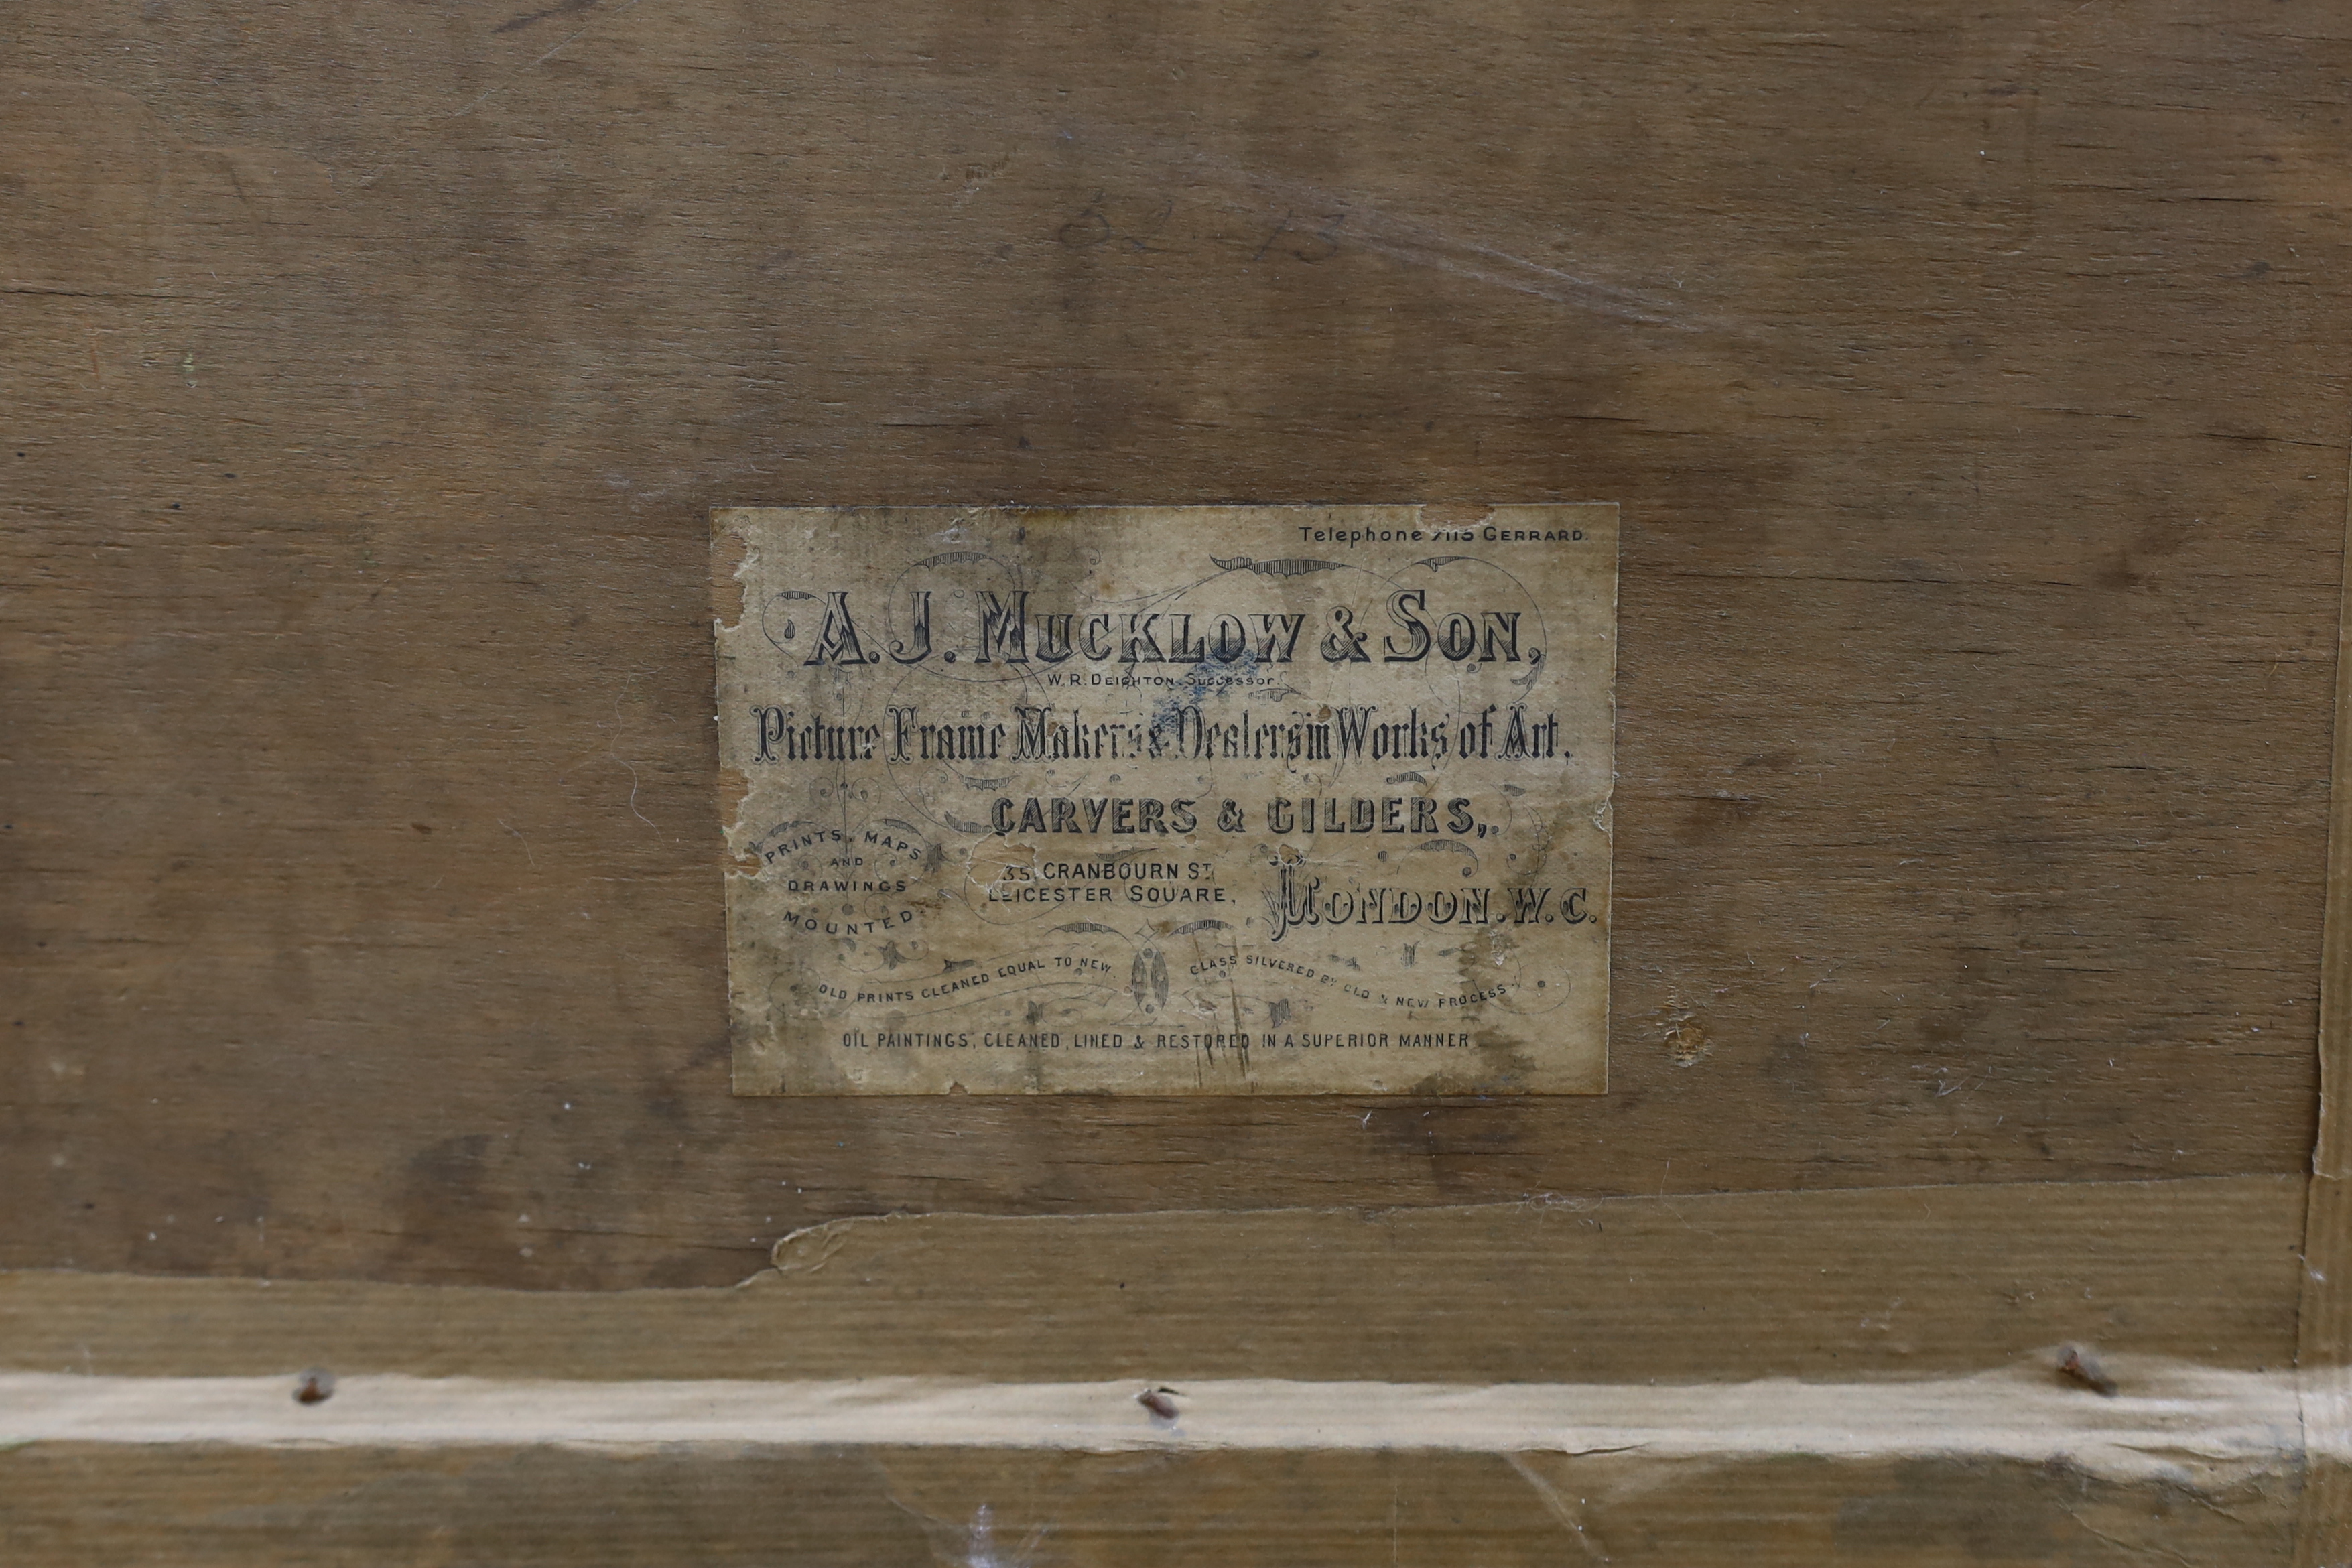 Telephone GERRARD.
A. J. MUCKLOW & SON,
W. R. DEIGHTON. Successor.
Picture Frame Makers & Dealers in Works of Art.
CARVERS & GILDERS,
PRINTS, MAPS
AND
DRAWINGS
MOUNTED
35, CRANBOURN ST.
LEICESTER SQUARE,
LONDON. W. C.
OLD PRINTS CLEANED EQUAL TO NEW
GLASS SILVERED BY OLD & NEW PROCESS
OIL PAINTINGS, CLEANED, LINED & RESTORED IN A SUPERIOR MANNER